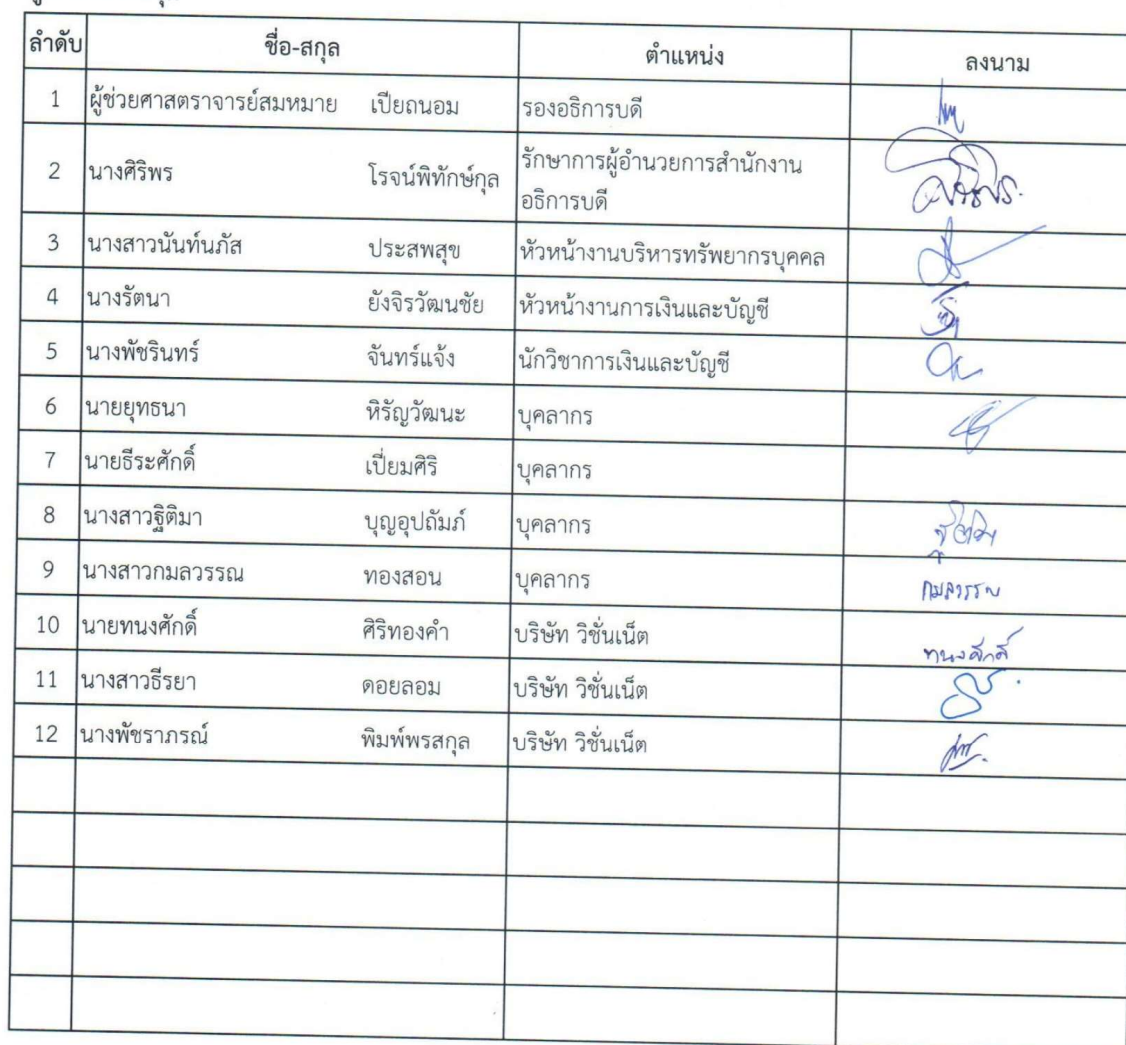 ลำดับ ชื่อ-สกุล ตำแหน่ง ลงนาม
1 ผู้ช่วยศาสตราจารย์สมหมาย เปียถนอม รองอธิการบดี
2 นางศิริพร โรจน์พิทักษ์กุล รักษาการผู้อำนวยการสำนักงาน
อธิการบดี ศิริพร.
3 นางสาวนันท์นภัส ประสพสุข หัวหน้างานบริหารทรัพยากรบุคคล
4 นางรัตนา ยังจิรวัฒนชัย หัวหน้างานการเงินและบัญชี
5 นางพัชรินทร์ จันทร์แจ้ง นักวิชาการเงินและบัญชี
6 นายยุทธนา หิรัญวัฒนะ บุคลากร
7 นายธีระศักดิ์ เปี่ยมศิริ บุคลากร
8 นางสาวฐิติมา บุญอุปถัมภ์ บุคลากร ฐิติมา
9 นางสาวกมลวรรณ ทองสอน บุคลากร กมลวรรณ
10 นายทนงศักดิ์ ศิริทองคำ บริษัท วิชั่นเน็ต ทนงศักดิ์
11 นางสาวธีรยา ดอยลอม บริษัท วิชั่นเน็ต
12 นางพัชราภรณ์ พิมพ์พรสกุล บริษัท วิชั่นเน็ต